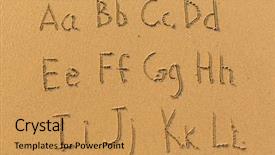 Aa Bb Cc Dd
Ee Ff Gg Hh
Ii Jj Kk Ll
Crystal
Templates for PowerPoint